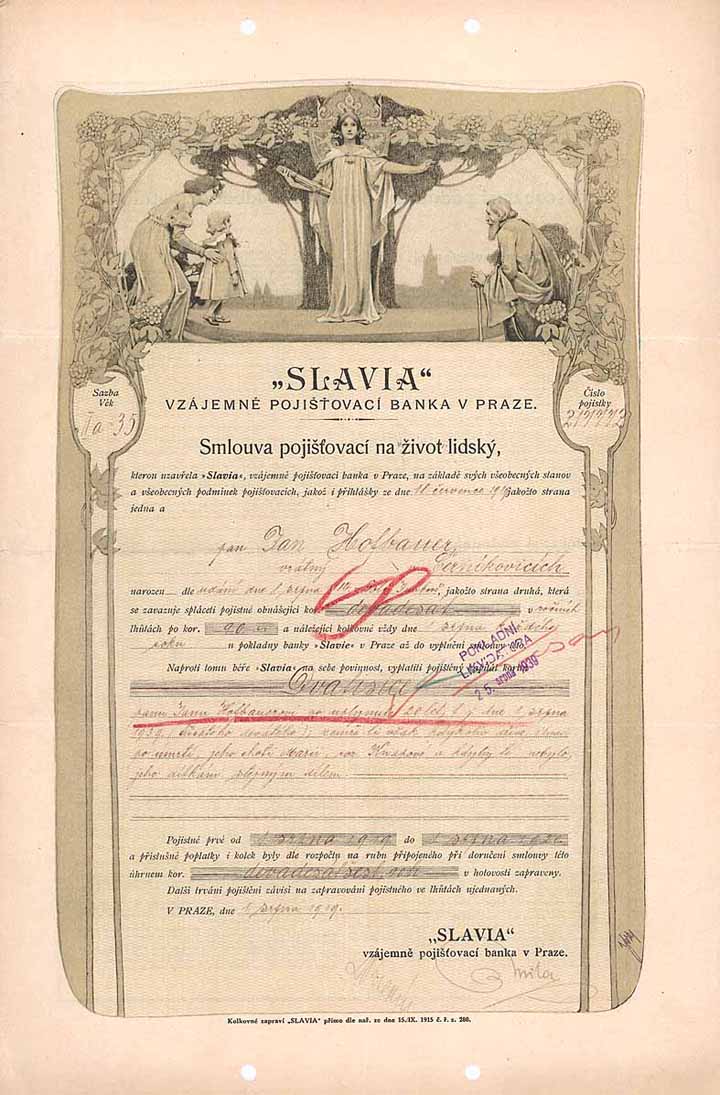 „SLAVIA“
VZÁJEMNĚ POJIŠŤOVACÍ BANKA V PRAZE.
Sazba
Věk
Ia 35
Číslo
pojistky
Smlouva pojišťovací na život lidský,
kterou uzavřela »Slavia«, vzájemně pojišťovací banka v Praze, na základě svých všeobecných stanov
a všeobecných podmínek pojišťovacích, jakož i přihlášky ze dne 11. července 1919 jakožto strana
jedna a
pan Jan Hofbauer,
Černíkovicích
narozen dle udání dne 1. srpna jakožto strana druhá, která
se zavazuje spláceti pojistné obnášející kor. devadesát v ročních
lhůtách po kor. 90 a náležející kolkovné vždy dne 1. srpna každého
roku u pokladny banky »Slavie« v Praze až do vyplnění smlouvy
Naproti tomu béře »Slavia« na sebe povinnost, vyplatiti pojištěný kapitál korun
Dvatisíce
panu Janu Hofbauerovi po uplynutí 20 let t. j. dne 1. srpna
1939
po úmrtí, jeho choti Marii, roz. a kdyby té nebylo,
jeho dítkám stejným dílem.
POKLADNÍ
LIKVIDATURA
25. srpna 1939
Pojistné prvé od 1. srpna 1919 do 1. srpna 1920
a příslušné poplatky i kolek byly dle rozpočtu na rubu připojeného při doručení smlouvy této
úhrnem kor. devadesátšest v hotovosti zapraveny.
Další trvání pojištění závisí na zapravování pojistného ve lhůtách ujednaných.
V PRAZE, dne 1. srpna 1919.
„SLAVIA“
vzájemně pojišťovací banka v Praze.
Kolkovné zapraví „SLAVIA“ přímo dle nař. ze dne 15./IX. 1915 č. ř. z. 280.